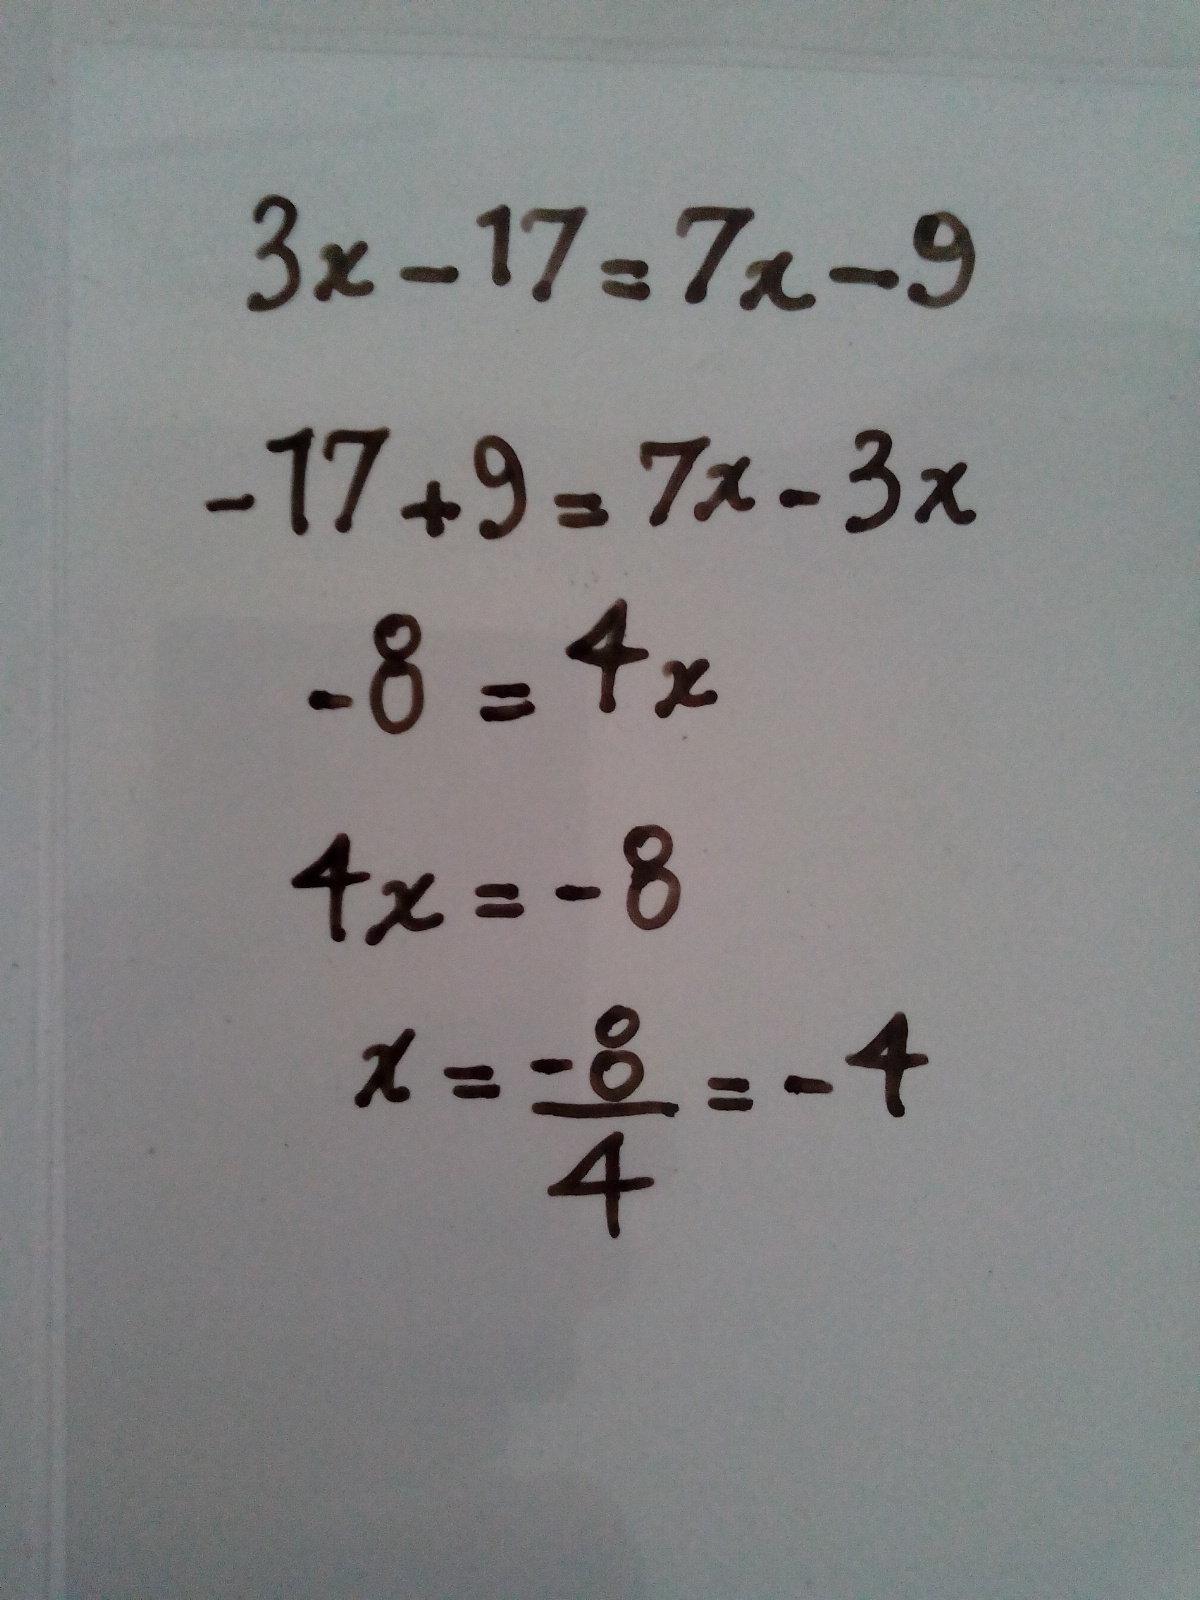 3x - 17 = 7x - 9
-17 + 9 = 7x - 3x
-8 = 4x
4x = -8
x = -8/4 = -4